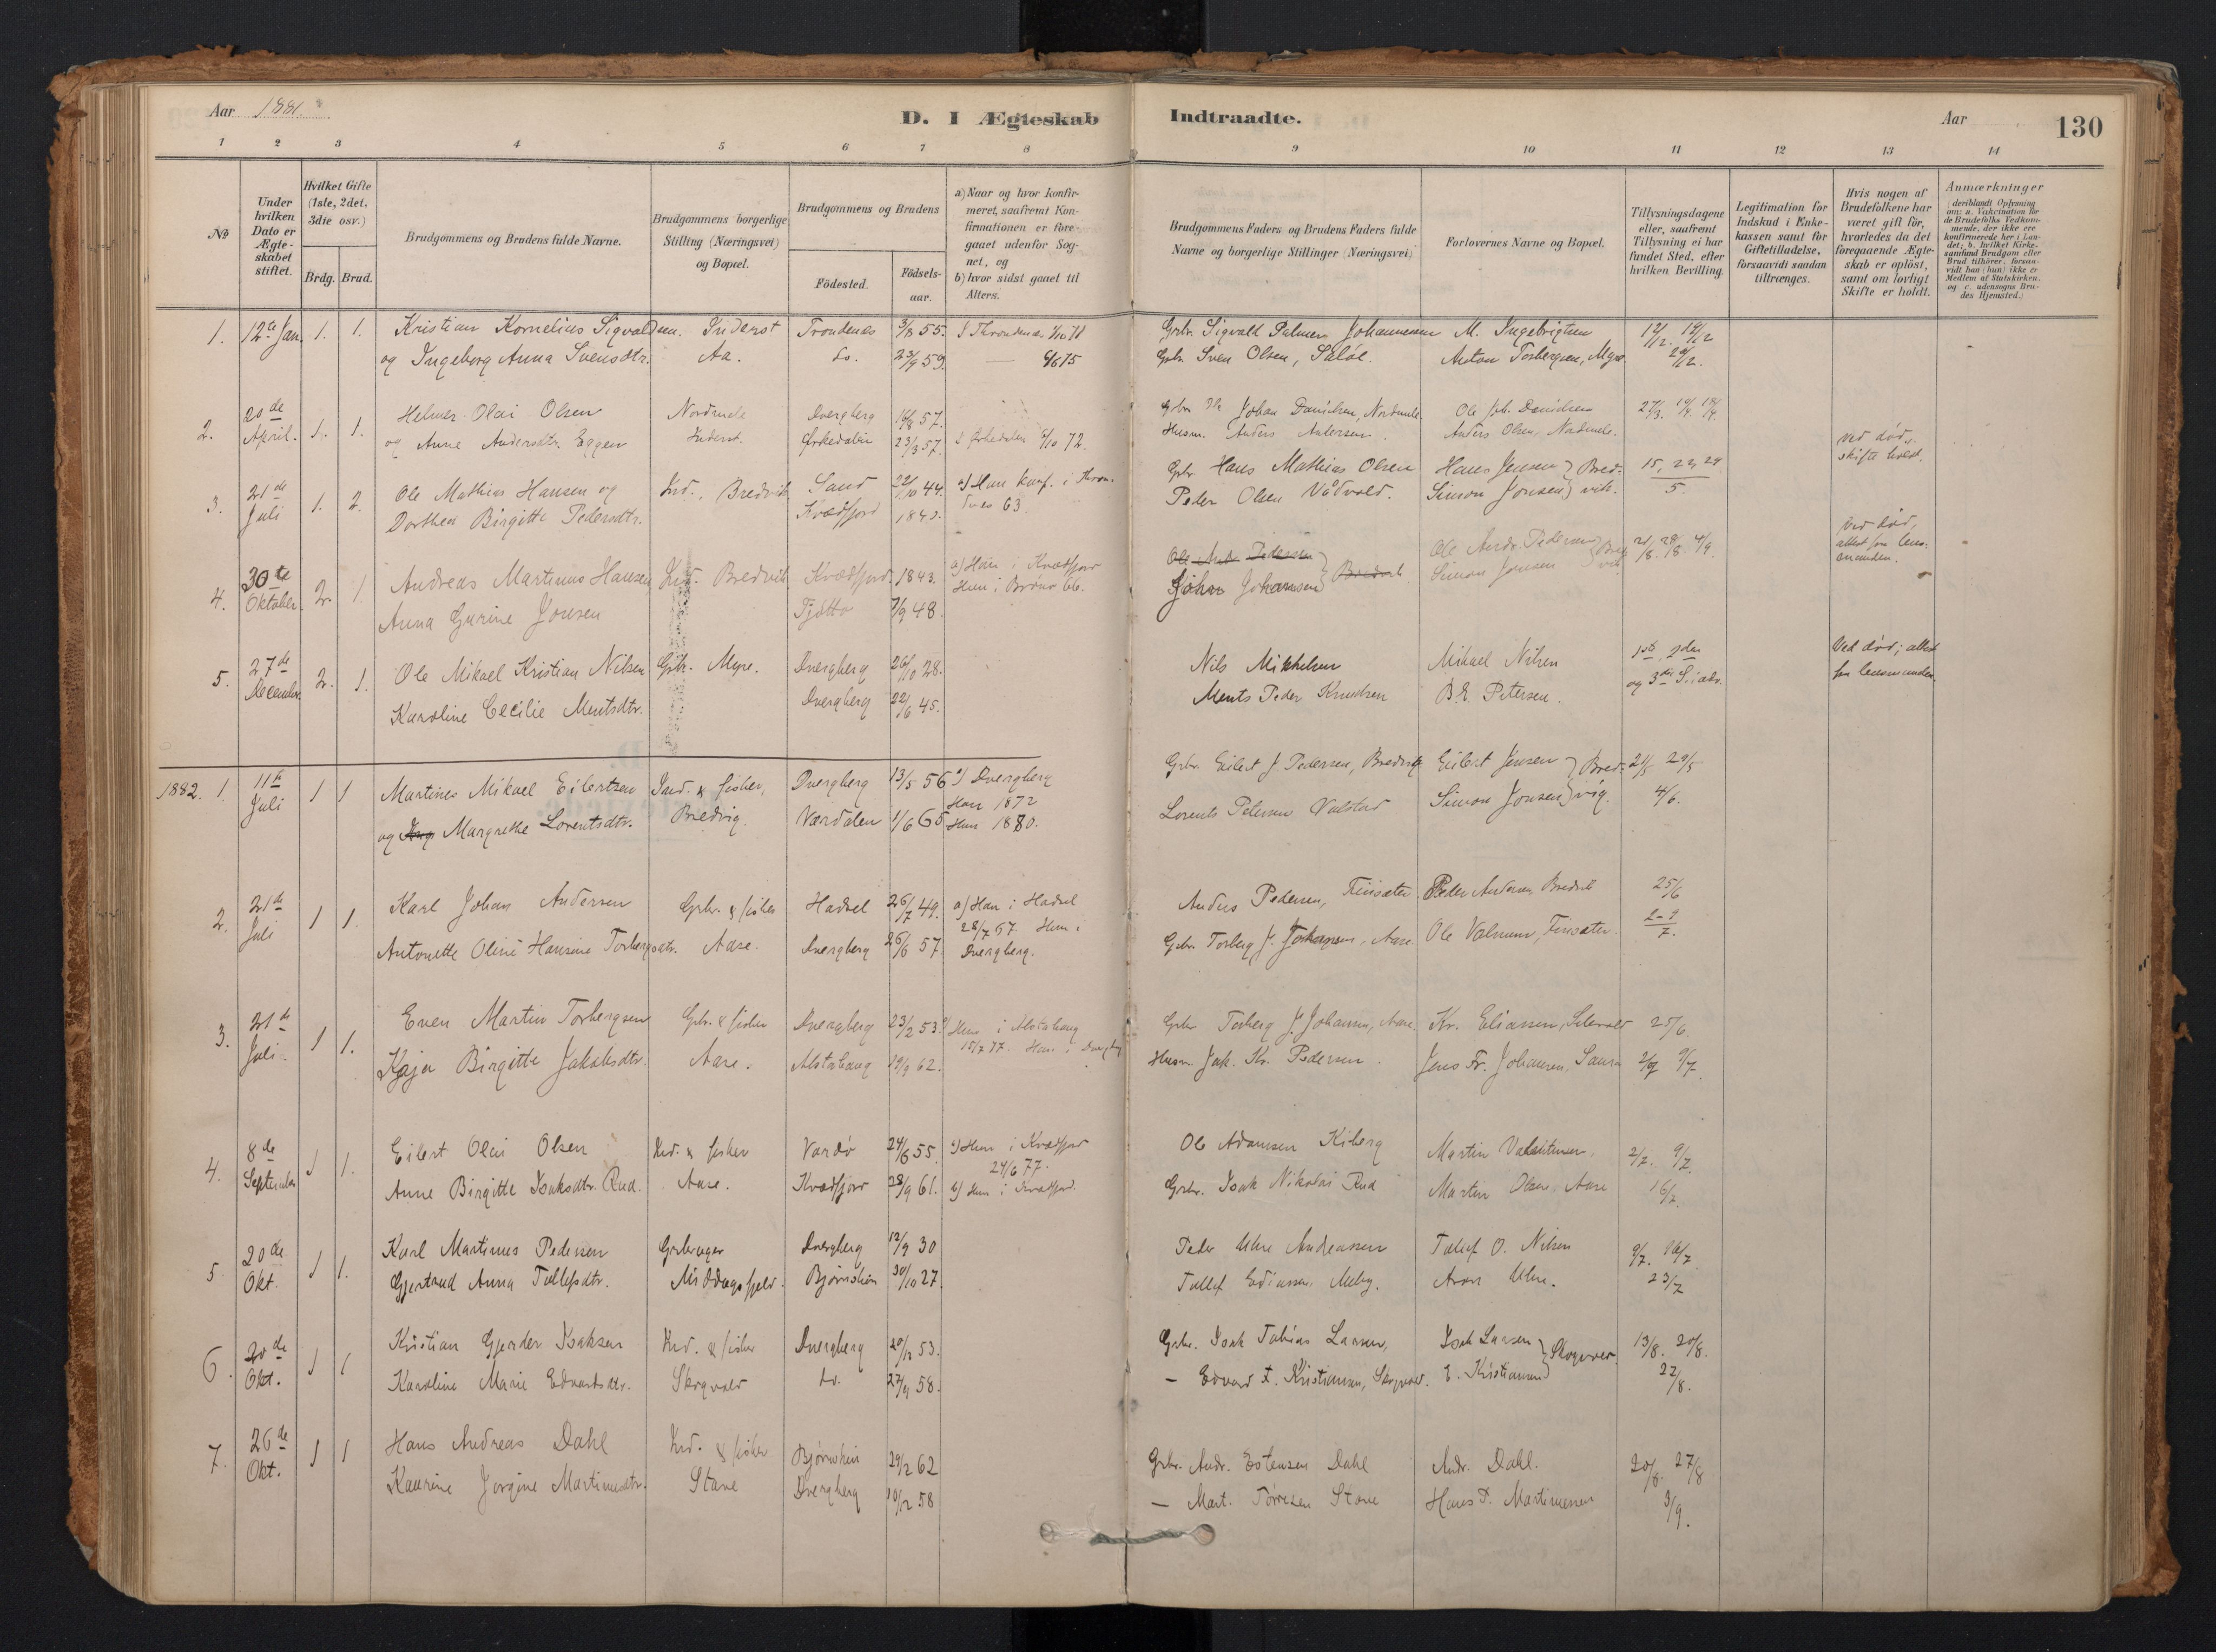 Aar 1881.
D. I Ægteskab Indtraadte.
Aar
130
1 2 3 4 5 6 7 8 9 10 11 12 13 14
No
Under hvilken Dato er Ægteskabet stiftet.
Hvilket Gifte (1ste, 2det, 3die osv.)
Brdg. Brud.
Brudgommens og Brudens fulde Navne.
Brudgommens borgerlige Stilling (Næringsvei) og Bopæl.
Brudgommens og Brudens
Födested.
Födsels-aar.
a) Naar og hvor konfirmeret, saafremt Konfirmationen er foregaaet udenfor Sognet, og
b) hvor sidst gaaet til Alters.
Brudgommens Faders og Brudens Faders fulde Navne og borgerlige Stillinger (Næringsvei)
Forlovernes Navne og Bopæl.
Tillysningsdagene eller, saafremt Tillysning ei har fundet Sted, efter hvilken Bevilling.
Legitimation for Indskud i Enkekassen samt for Giftetilladelse, forsaavidt saadan tiltrænges.
Hvis nogen af Brudefolkene har været gift för, hvorledes da det foregaaende Ægteskab er oplöst, samt om lovligt Skifte er holdt.
Anmærkninger
(deriblandt Oplysning om: a. Vakcination for de Brudefolks Vedkommende, der ikke ere konfirmerede her i Landet; b. hvilket Kirkesamfund Brudgom eller Brud tilhörer, forsaavidt han (hun) ikke er Medlem af Statskirken, og c. udensogns Brudes Hjemsted.)
1. 12te Jan. 1. 1. Kristian Kornelius Sigvaldsen. Inderst Trondenes 3/8 55. Grbr. Sigvald Palmer Johannessen M. Ingebrigtsen 12/12. 19/12
og Ingeborg Anna Svensdtr. Aa. do. 23/9 59. Grbr. Sven Olsen, Anton Torbergsen, Myre.
2. 20de April. 1. 1. Helmer Olai Olsen Nordmele Dverberg 16/8 57. Johan Danielsen, Nordmele. Ole Joh. Danielsen 27/3.
og Anne Andersdtr. Eggen Inderst. Ørkedalen 23/3 57. i Ørkedalen 72. Husm. Anders Andersen. Anders Olsen, Nordmele.
3. 21de Juli 1. 2. Ole Mathias Hansen og Ind., Bredvik Sand 22/10 44. a) Hun konf. i Thron- Grbr. Hans Mathias Olsen Hans Jensen } Bred- 15, 22, 29 ved död, skifte holdt.
Dorthea Birgitte Pedersdtr. Kvædfjord dnes 63. Peder Olsen Simon Jonsen } vik. 5.
4. 30te Oktober. 2. 1. Andreas Martinus Hansen Ind. Bredvik Kvædfjord 1843. a) Han i Kvædfjord Ole Andr. Pedersen Ole Andr. Pedersen } Bred- 21/8. 28/8. 4/9. Ved död, attest fra lensmanden.
Anna Gurine Jonsen Tjøtta 7/9 48. Hun i Brønø 66. Johan Johannsen } Bredvik Simon Jonsen } vik
5. 27de December. 2. 1. Ole Mikael Kristian Nilsen Grbr. Myre. Dverberg 26/10 28. Nils Mikkelsen Mikael Nilsen 1ste, 2den Ved död; attest
Karoline Cecilie Mentsdtr. Dverberg 22/6 45. Ments Peder Knudsen B. E. Petersen. og 3die S. i adv. fra lensmanden.
1882. 1. 11te Juli 1 1 Martines Mikael Eilertsen Ind. & fisker, Dvergberg 13/5 56 a) Dvergberg Han 1872 Grbr. Eilert J. Pedersen, Bredvig Eilert Jensen } Bred- 21/5 29/5
og Ing Margrethe Lorentsdtr. Bredvig. Værdalen 1/6 65 Hun 1880. Lorents Petersen Valstad Simon Jonsen } vig. 4/6.
2. 21de Juli 1 1. Karl Johan Andersen Grbr. & fisker Hadsel 26/7 49. a) Han i Hadsel Anders Pedersen, Peder Andersen, Bredvik 25/6
28/7 67. Hun i
Antonette Oline Hansine Torbergsdtr. Aase. Dvergberg 26/6 57. Dvergberg. Grbr. Torberg J. Johansen, Aase. Ole
3. 21de Juli. 1 1. Even Martin Torbergsen Grbr. & fisker Dvergberg 23/2 53. Hun i Alstahaug Grbr. Torberg J. Johansen, Aase. Kr. Eliassen, 25/6.
15/7 77. Han i Dvergberg
Kaja Birgitte Jakobsdtr. Aase. Alstahaug 19/9 62. Husm. Jak. Kr. Pedersen. Jens Fr. Johansen, Saura 2/7 9/7.
4. 8de September 1 1. Eilert Olai Olsen Ind. & fisker Vardö 24/6 55. a) Hun i Kvædfjord Ole Adamsen Kiberg Martin Valentinsen. 2/7. 9/7.
24/6 77.
Anne Birgitte Isaksdtr. Rud. Aase. Kvædfjord 28/9 61. b) Hun i Kvædfjord. Grbr. Isak Nikolai Rud Martin Olsen, Aase 16/7.
5. 20de Okt. 1 1. Karl Martinus Pedersen Grbruger Dvergberg 12/9 30 Peder Uhre Andreassen Tollef O. Nilsen 9/7. 16/7.
Gjertrud Anna Tollefsdtr. Middagsfjeld. Bjørnskin 30/10 27. Tollef Ediassen, Aron Uhre. 23/7
6. 20de Okt. 1 1 Kristian Gjerder Isaksen Ind. & fisker Dvergberg 20/12 53. Grbr. Isak Tobias Larsen, Isak Larsen } Skogvold. 13/8. 20/8.
Karoline Marie Edvardsdtr. Skogvold do. 58. — Edvard Kristiansen, Skogvold. E. Kristiansen } 27/8.
7. 26de Okt. 1 1 Hans Andreas Dahl Ind. & fisker Bjørnskin 29/2 62 Grbr. Andr. Estensen Dahl Andr. Dahl. 20/8. 27/8
Kaurine Jorgine Martinusdtr. Stave Dvergberg 10/12 58 — Mart. Tørresen Stave Hans P. Martinussen 3/9.